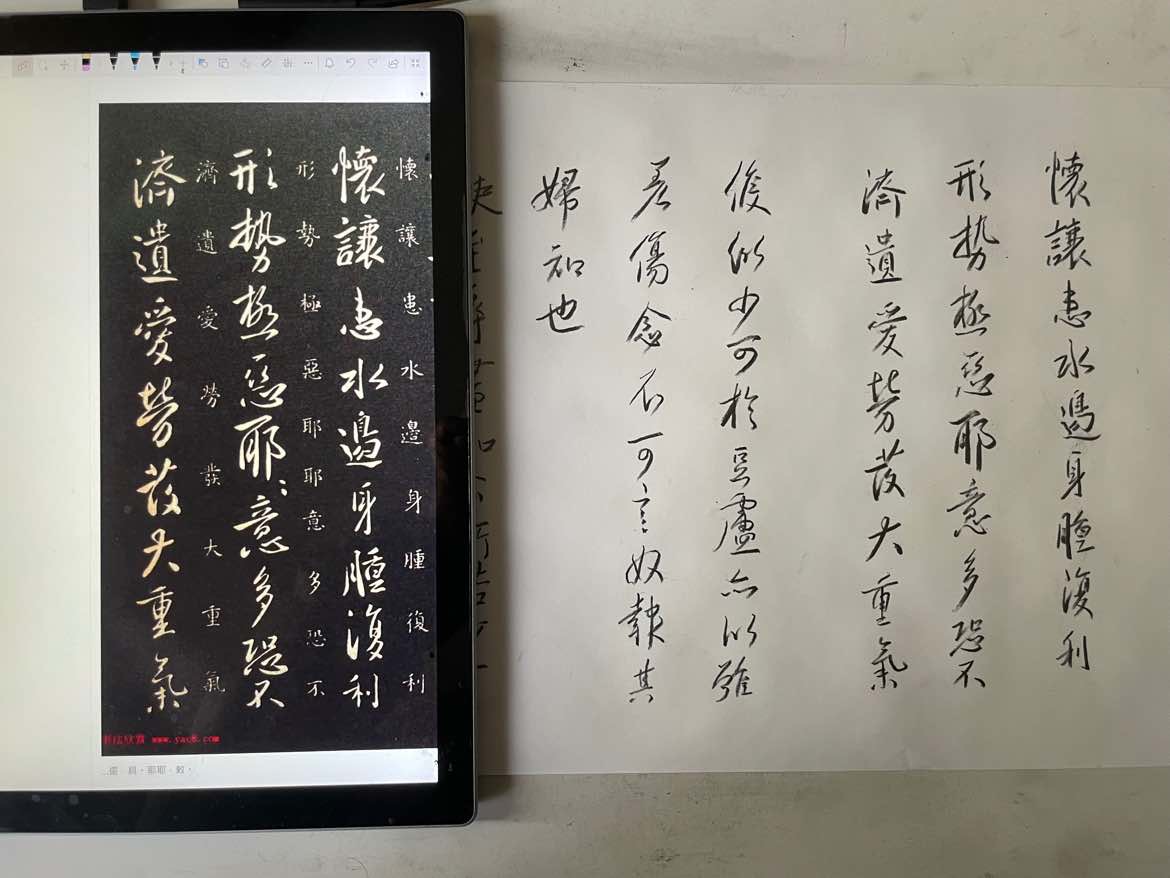 懷讓患水邊身腫復利
懷讓患水邊身腫復利
形勢極惡耶耶意多恐不
形勢極惡耶〻意多恐不
濟遺愛勞發大重氣
濟遺愛勞發大重氣
书法欣赏 www.yac8.com
懷讓患水邊身腫復利
形勢極惡耶意多恐不
濟遺愛勞發大重氣
似少可於豆盧亦以雖
差傷念不可言奴報其
婦知也